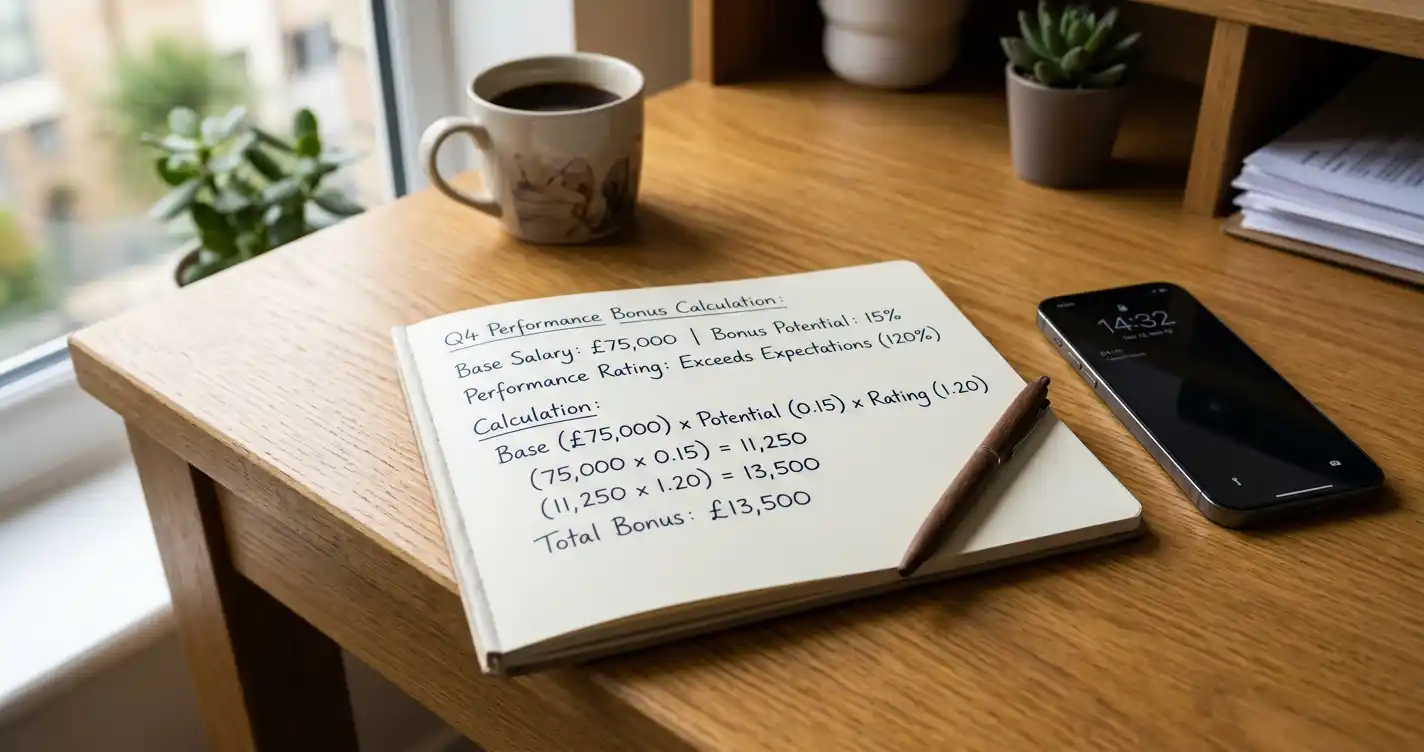 Q4 Performance Bonus Calculation:
Base Salary: £75,000 | Bonus Potential: 15%
Performance Rating: Exceeds Expectations (120%)
Calculation:
Base (£75,000) x Potential (0.15) x Rating (1.20)
(75,000 x 0.15) = 11,250
(11,250 x 1.20) = 13,500
Total Bonus: £13,500
14:32